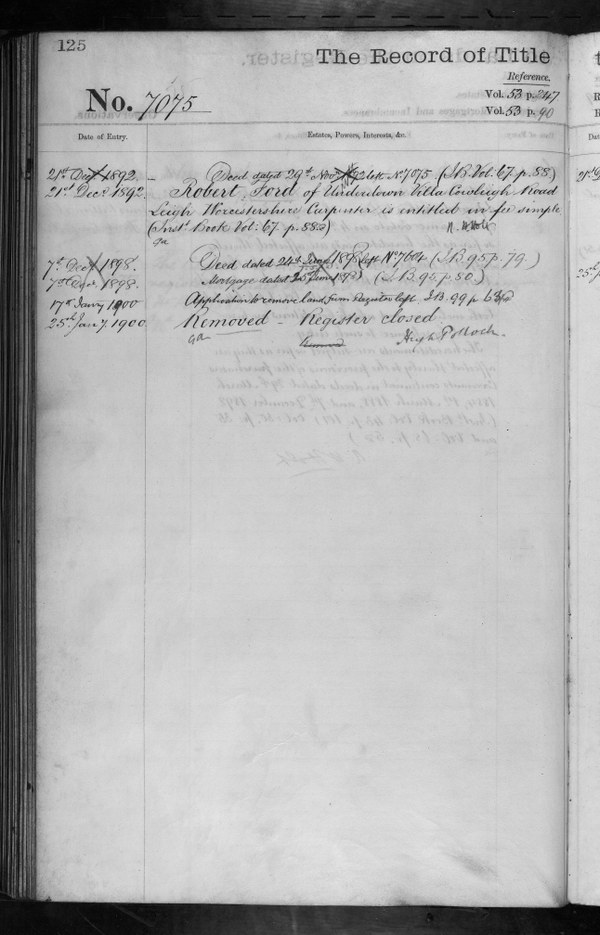 125
The Record of Title
Reference.
No. 7075
Vol. 53 p. 247
Vol. 53 p. 90
Date of Entry.
Estates, Powers, Interests, &c.
21st Decr 1892 – Deed dated 29th Novr 1892 left No 7075 (I.B. Vol: 67. p. 88.)
21st Decr 1892. Robert Ford of Underdown Villa Cowleigh Road
Leigh Worcestershire Carpenter is entitled in fee simple
(Inst. Book Vol: 67. p. 88.)
7th Decr 1898. Deed dated 24th June 1898 left No 7604 (I.B. 95 p. 79.)
7th Decr 1898. Mortgage dated 25 June 1898) (I.B. 95, p. 80.)
17th Jany 1900 Application to remove land from Register left I.B. 99 p.
25th Jany 1900. Removed – Register closed
Hugh Pollock.